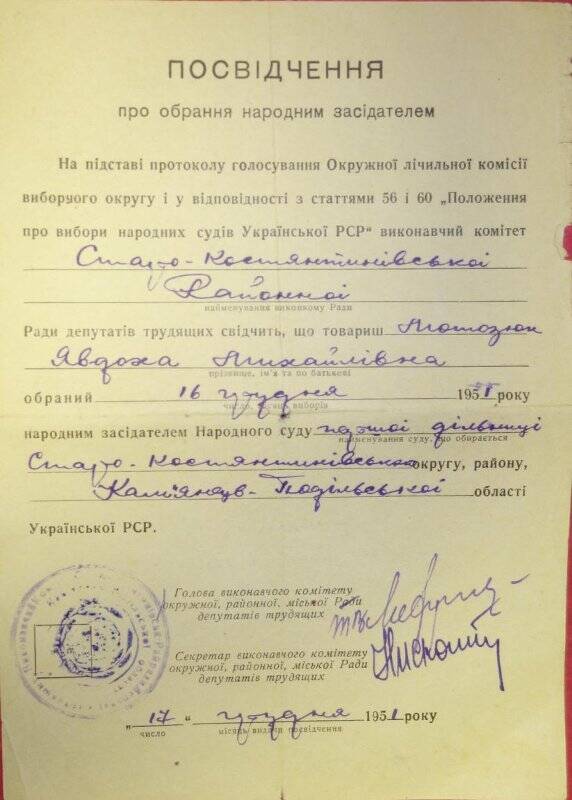 ПОСВІДЧЕННЯ
про обрання народним засідателем
На підставі протоколу голосування Окружної лічильної комісії
виборчого округу і у відповідності з статтями 56 і 60 „Положення
про вибори народних судів Української РСР" виконавчий комітет
Старо-Костянтинівської
Районної
найменування виконкому Ради
Ради депутатів трудящих свідчить, що товариш
Явдоха Михайлівна
прізвище, ім'я та по батькові
обраний 16 грудня 1951 року
число, місяць виборів
народним засідателем Народного суду першої дільниці
найменування суду, що обирається
Старо-Костянтинівська округу, району,
Кам'янець-Подільської області
Української РСР.
Голова виконавчого комітету
окружної, районної, міської Ради
депутатів трудящих
Секретар виконавчого комітету
окружної, районної, міської Ради
депутатів трудящих
„17" грудня 1951 року
число місяць видачі посвідчення